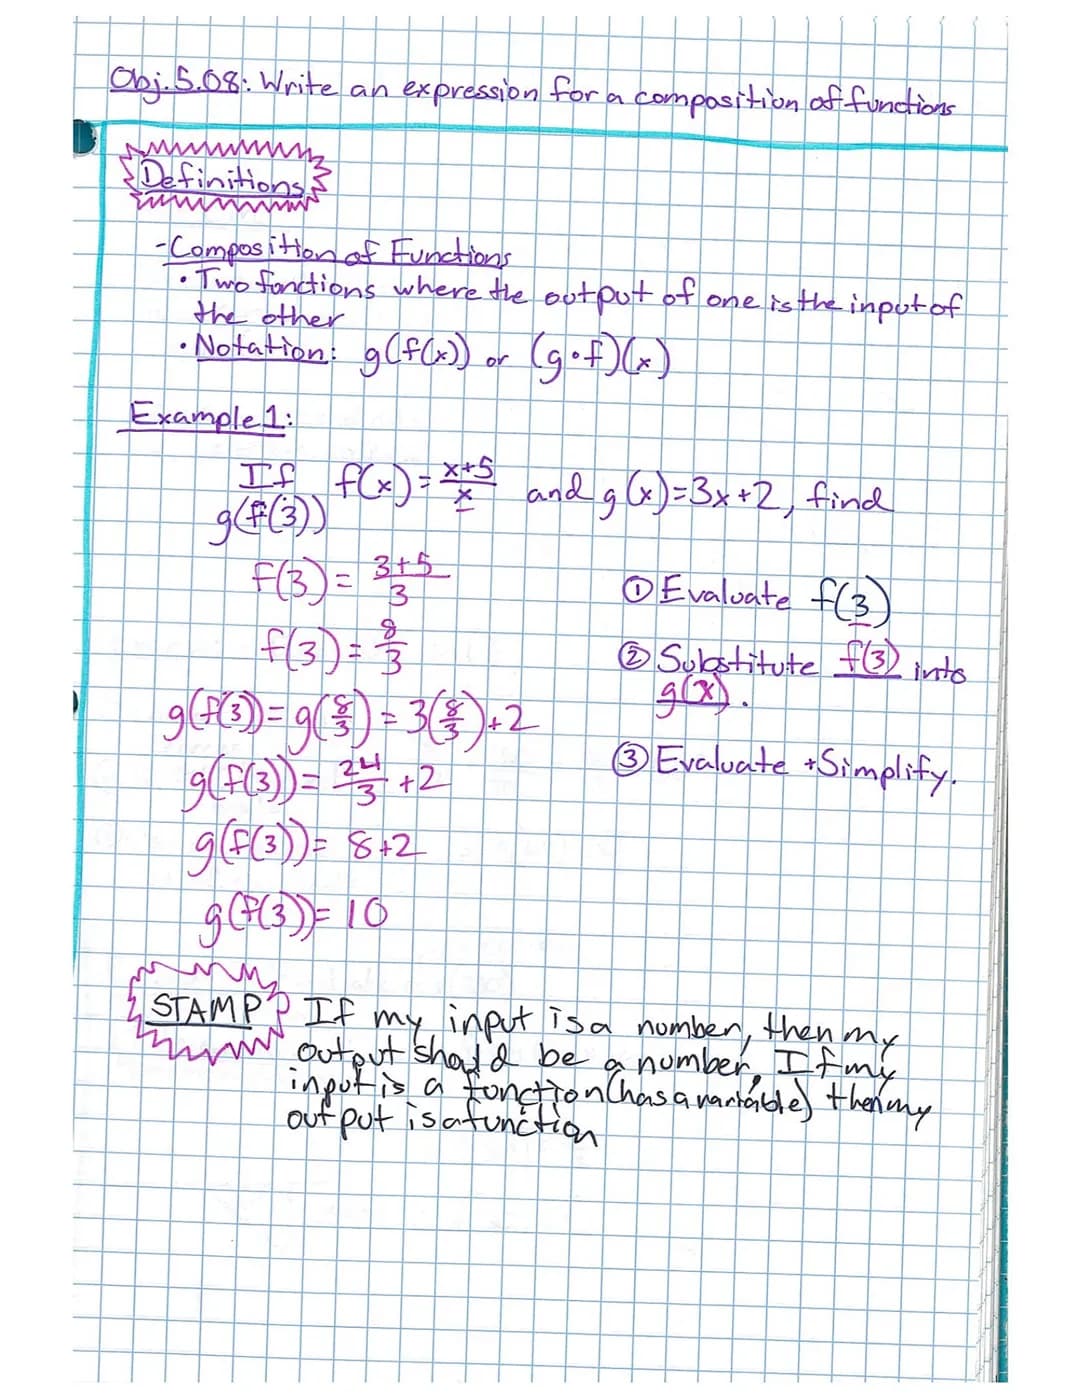 Obj. 5.08: Write an expression for a composition of functions
Definitions
-Composition of Functions
• Two functions where the output of one is the input of
the other
• Notation: g(f(x)) or (g∘f)(x)
Example 1:
If f(x) = x+5/x and g(x)=3x+2, find
g(f(3))
f(3) = 3+5/3
① Evaluate f(3)
f(3) = 8/3
② Substitute f(3) into
g(x).
g(f(3)) = g(8/3) = 3(8/3)+2
③ Evaluate + Simplify.
g(f(3)) = 24/3 + 2
g(f(3)) = 8+2
g(f(3)) = 10
STAMP If my input is a number, then my
output should be a number. If my
input is a function (has a variable) then my
output is a function